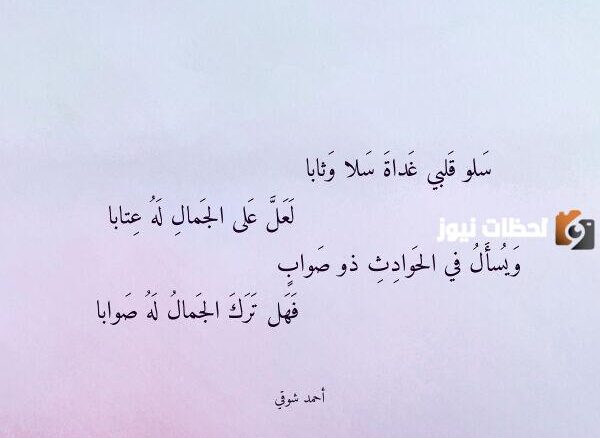 سَلو قَلبي غَداةَ سَلا وَثابا
لَعَلَّ عَلى الجَمالِ لَهُ عِتابا
لحظات نيوز
وَيُسأَلُ في الحَوادِثِ ذو صَوابٍ
فَهَل تَرَكَ الجَمالُ لَهُ صَوابا
أحمد شوقي